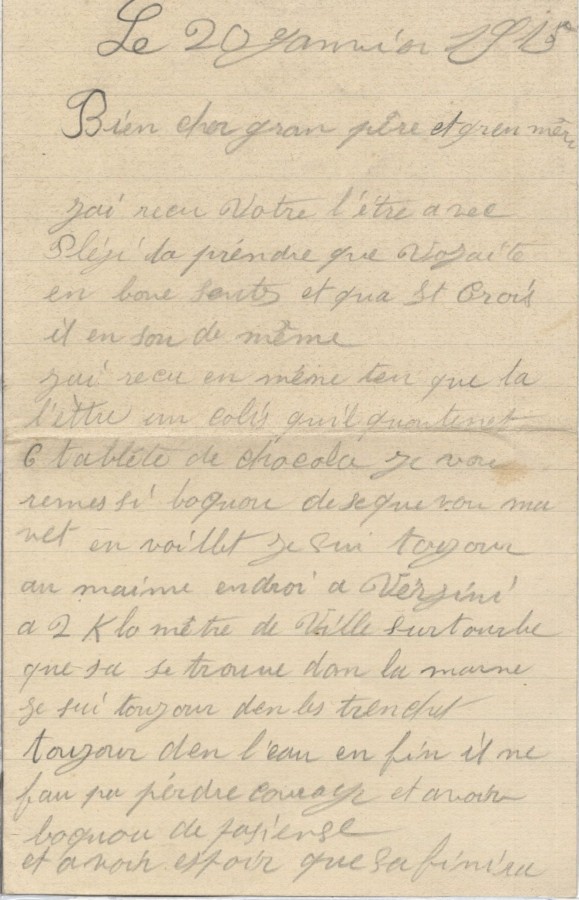 Le 20 Janvier 1915
Bien cher gran père et gren mère
jai recu Votre l'être avec
Plési da préndre que Vozaite
en bone sentz et qua St Crois
il en son de même
jai recu en même ten que la
l'èttre un colis quil quontenet
6 tabléte de chocola je vou
remes si boquou de se que vou ma
vet en voillet je sui toujour
au maime endroi a Verzini
a 2 Klo mêtre de Ville surtourbe
que sa se trouve dan la marne
je sui toujour den les trenchet
toujour den l'eau en fin il ne
fau pa pérdre courage et avoir
boquou de pasiense
et avoir espoir que sa finira